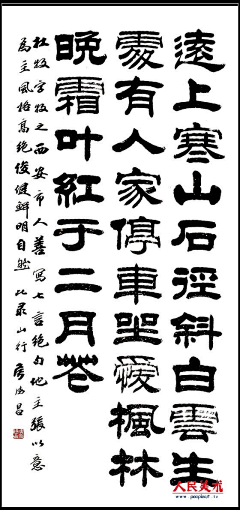 遠上寒山石徑斜白雲生
處有人家停車坐愛楓林
晚霜叶紅于二月花
杜牧字牧之西安市人善寫七言絕句他主張以意
為主風格高絕俊健鮮明自然 此最山行
人民美术